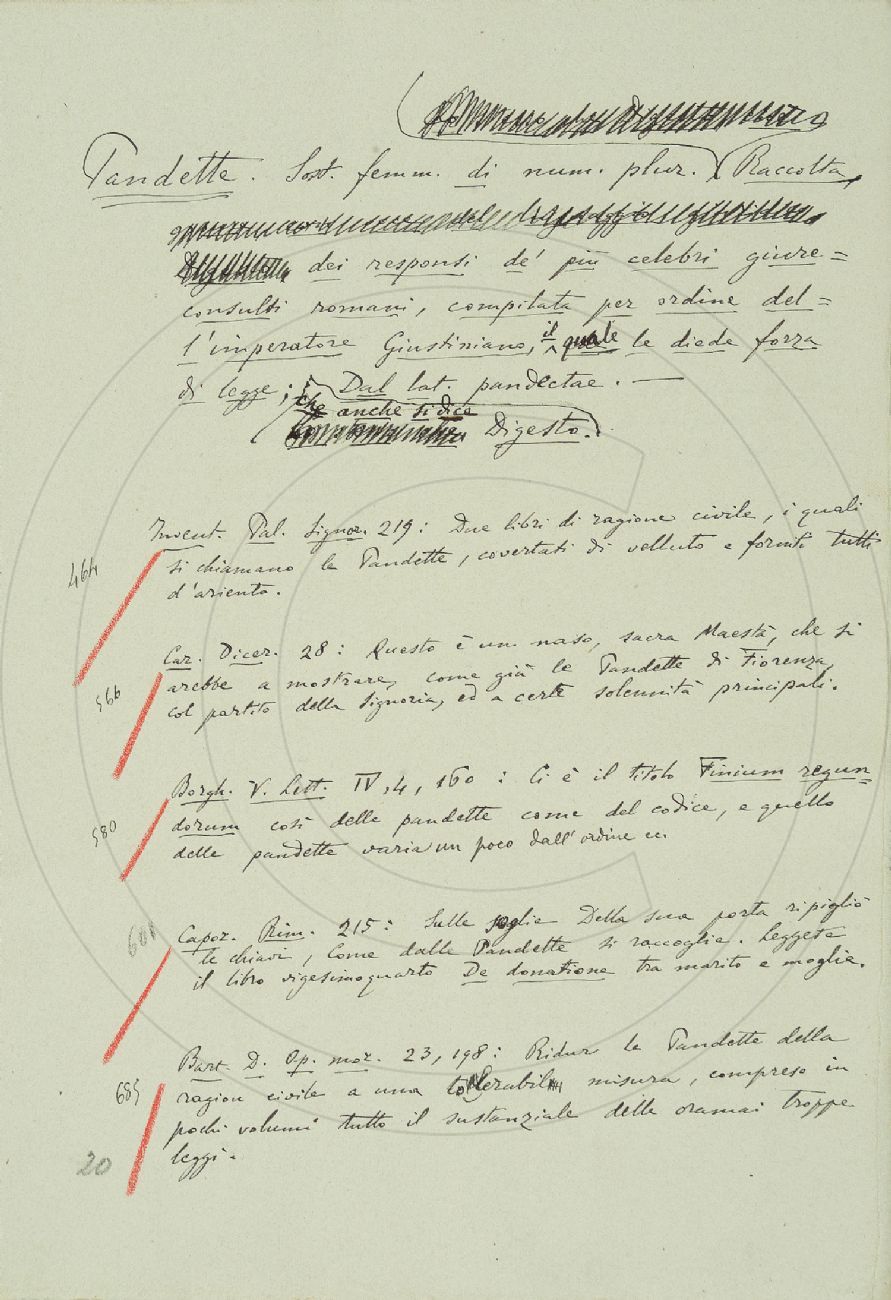 Pandette. Sost. femm. di num. plur. Raccolta
dei responsi de' più celebri giure=
consulti romani, compilata per ordine del=
l'imperatore Giustiniano, il quale le diede forza
di legge; Dal lat. pandectae. —
che anche si dice
Digesto.
Invent. Pal. Signor. 219: Due libri di ragione civile, i quali
464
si chiamano le Pandette, covertati di velluto e forniti tutti
d'ariento.
Car. Dicer. 28: Questo è un naso, sacra Maestà, che si
566
arebbe a mostrare, come già le Pandette di Fiorenza,
col partito della Signoria, ed a certe solennità principali.
Borgh. V. Lett. IV, 4, 160: Ci è il titolo Finium regun=
580
dorum così delle pandette come del codice, e quello
delle pandette varia un poco dall'ordine ec.
Capor. Rim. 215: Sulle soglie Della sua porta ripigliò
601
le chiavi, Come dalle Pandette si raccoglie. Leggete
il libro vigesimoquarto De donatione tra marito e moglie.
Bart. D. Op. mor. 23, 198: Ridur le Pandette della
685
ragion civile a una tollerabil misura, compreso in
pochi volumi tutto il sustanziale delle oramai troppe
leggi.
20